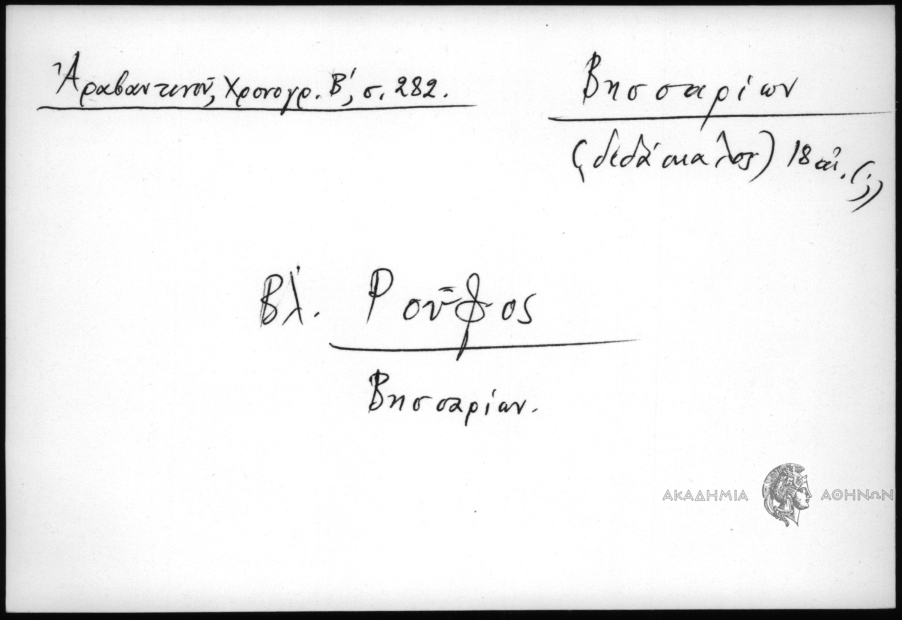 Ἀραβαντινοῦ, Χρονογρ. Β΄, σ. 282.
Βησσαρίων
(διδάσκαλος) 18 αἰ. (;)
Βλ. Ροῦφος
Βησσαρίων.
ΑΚΑΔΗΜΙΑ ΑΘΗΝΩΝ